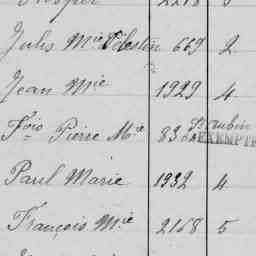 Prosper 2218 5
Jules Mie Célestin 669 2
Jean Mie 1929 4
Fois Pierre Mie 83 St Aubin
EXEMPTÉ
Paul Marie 1932 4
François Mie 2158 5